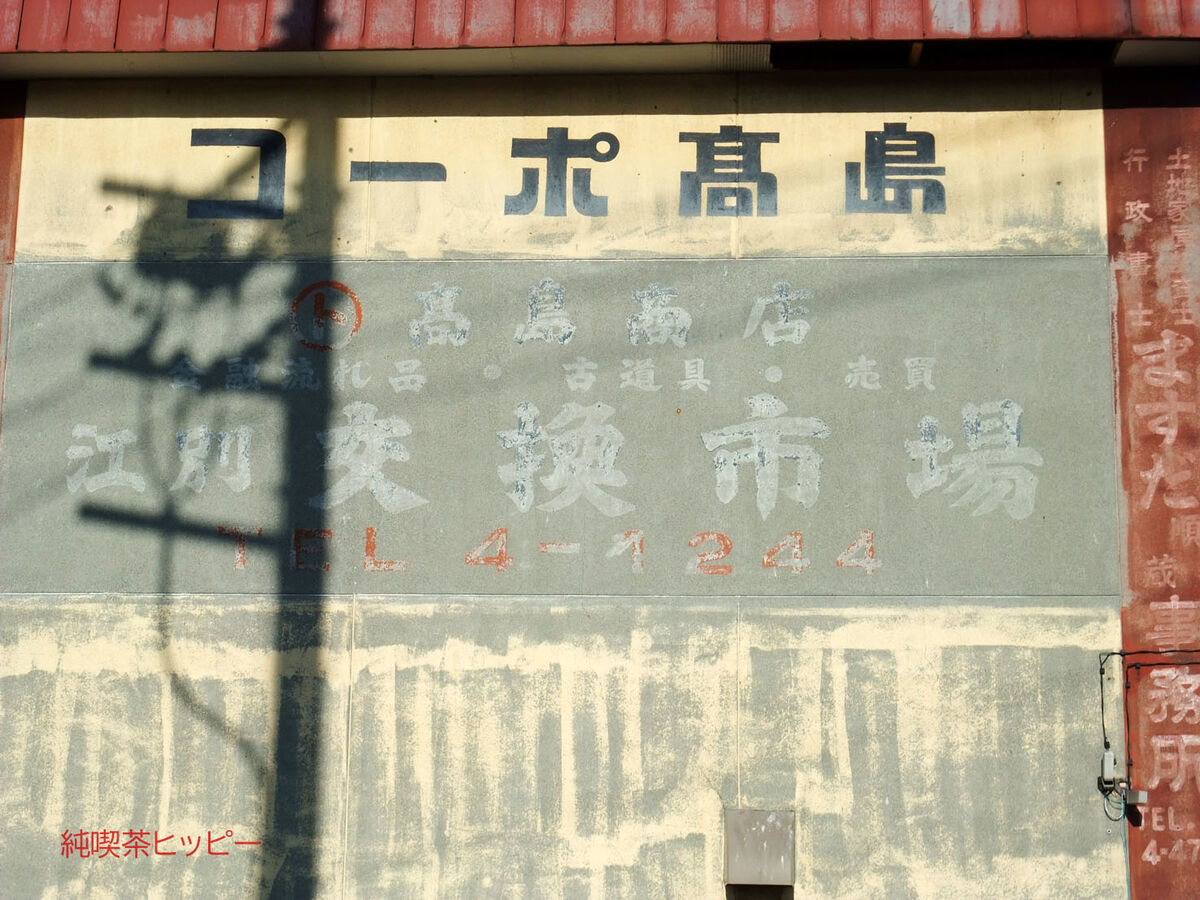 コーポ髙島
ト 髙島商店
金融流れ品・古道具・売買
江別 交換市場
TEL 4-1244
土地家屋調査士
行政書士
ますだ順蔵事務所
TEL.
4-47
純喫茶ヒッピー